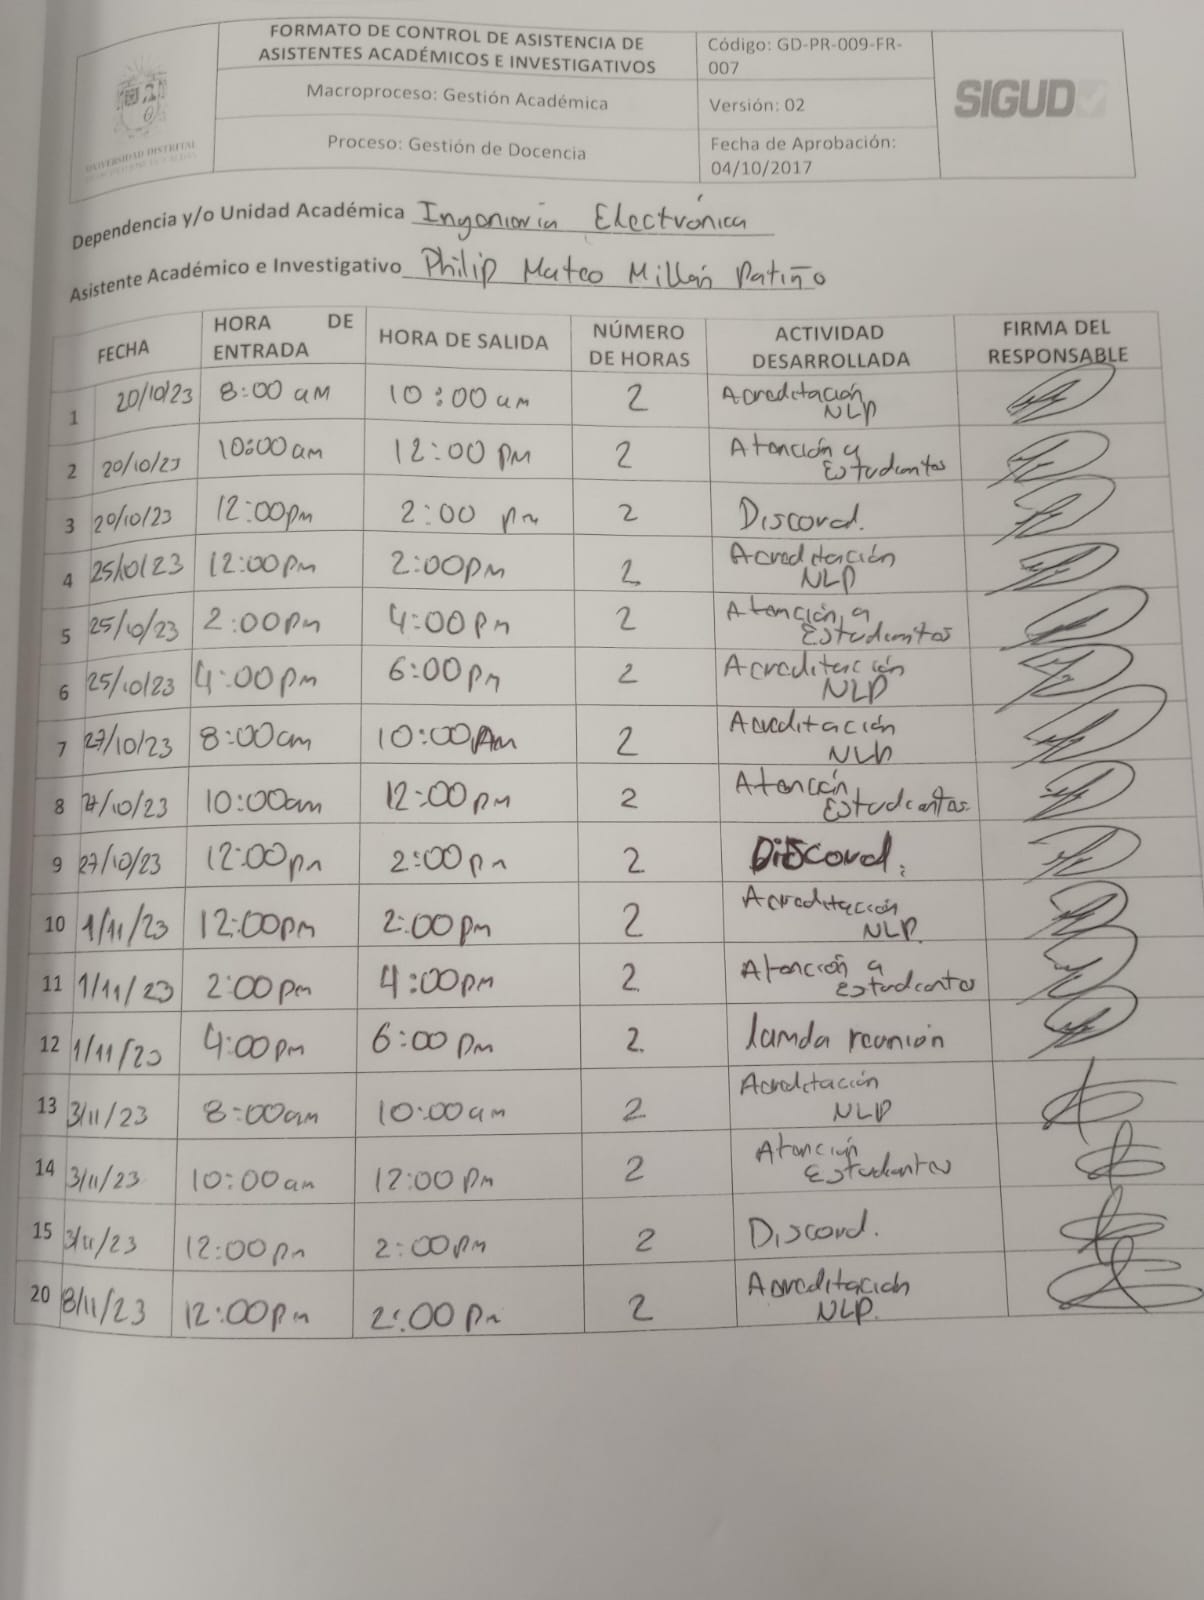 FORMATO DE CONTROL DE ASISTENCIA DE
ASISTENTES ACADÉMICOS E INVESTIGATIVOS
Macroproceso: Gestión Académica
Proceso: Gestión de Docencia
Código: GD-PR-009-FR-
007
Versión: 02
Fecha de Aprobación:
04/10/2017
SIGUD
UNIVERSIDAD DISTRITAL
Dependencia y/o Unidad Académica Ingeniería Electrónica
Asistente Académico e Investigativo Philip Mateo Millán Patiño
FECHA HORA DE ENTRADA HORA DE SALIDA NÚMERO DE HORAS ACTIVIDAD DESARROLLADA FIRMA DEL RESPONSABLE
1 20/10/23 8:00 am 10:00 am 2 Acreditación NLP
2 20/10/23 10:00 am 12:00 pm 2 Atención a Estudiantes
3 20/10/23 12:00pm 2:00 pm 2 Discord.
4 25/10/23 12:00pm 2:00pm 2 Acreditación NLP
5 25/10/23 2:00pm 4:00pm 2 Atención a Estudiantes
6 25/10/23 4:00pm 6:00pm 2 Acreditación NLP
7 27/10/23 8:00am 10:00Am 2 Acreditación NLP
8 27/10/23 10:00am 12:00pm 2 Atención Estudiantes
9 27/10/23 12:00pm 2:00pm 2 Discord.
10 1/11/23 12:00pm 2:00pm 2 Acreditación NLP.
11 1/11/23 2:00pm 4:00pm 2 Atención a Estudiantes
12 1/11/23 4:00pm 6:00pm 2 lamda reunión
13 3/11/23 8:00am 10:00am 2 Acreditación NLP
14 3/11/23 10:00am 12:00pm 2 Atención Estudiantes
15 3/11/23 12:00pm 2:00pm 2 Discord.
20 8/11/23 12:00pm 2:00pm 2 Acreditación NLP.